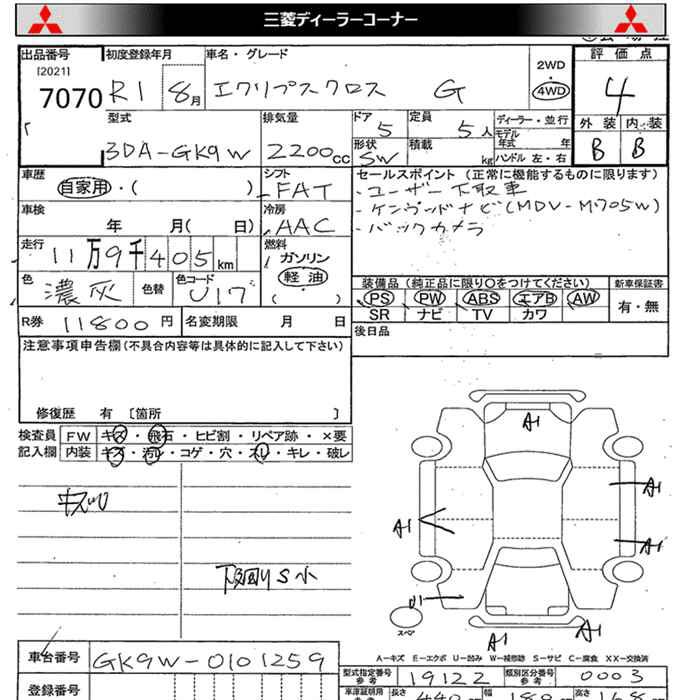 三菱ディーラーコーナー
出品番号 初度登録年月 車名・グレード 評価点
[2021]
7070 R1 8月 エクリプスクロス G 2WD・4WD 4
型式 排気量 ドア 定員 ディーラー・並行 外装 内装
3DA-GK9W 2200cc 5 5人 モデル年式 年 B B
形状 積載 ハンドル 左・右
SW kg
車歴 シフト セールスポイント (正常に機能するものに限ります)
自家用・( ) FAT ・ユーザー下取車
車検 冷房 ・ケンウッドナビ(MDV-M705W)
年 月( 日) AAC ・バックカメラ
走行 燃料
11万9千405km ガソリン
色 色替 色コード 軽油
濃灰 U17 ( ・ )
装備品 (純正品に限り○をつけてください) 新車保証書
PS PW ABS エアB AW 有・無
SR ナビ TV カワ
R券 11800円 名変期限 月 日
後日品
注意事項申告欄(不具合内容等は具体的に記入して下さい)
修復歴 有 [箇所 ]
検査員 FW キズ・飛石・ヒビ割・リペア跡・×要
記入欄 内装 キズ・汚レ・コゲ・穴・スレ・キレ・破レ
下回りS小
A1
A1
A1
A1
U1
A1
A1
スペア
A-キズ E-エクボ U-凹み W-補修跡 S-サビ C-腐食 XX-交換済
車台番号 GK9W-0101259
型式指定番号 参考 19122 類別区分番号 参考 0003
登録番号
車庫証明用 参考 長さ 440 幅 180 高さ 168